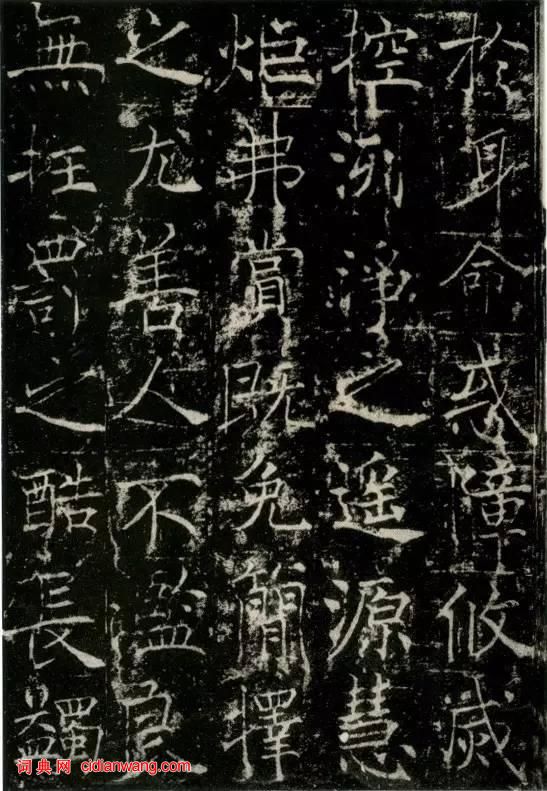 於身命惑障攸滅
控洌淨之遥源慧
炬弗賞既免簡擇
之尤善人不濫良
無抂罰之酷長蠲
词典网 cidianwang.com